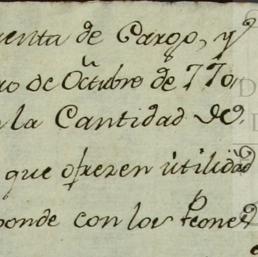 uenta de Cargo, y
ro de Octubre de 770,
la Cantidad de
que ofrezen utilidad
ponde con los Peones